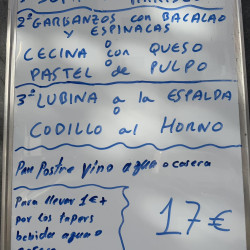 2º GARBANZOS con BACALAO
Y ESPINACAS
o
CECINA con QUESO
o
PASTEL de PULPO
3º LUBINA a la ESPALDA
o
CODILLO al HORNO
Pan Postre vino agua o casera
Para llevar 1€+
por los tapers
bebida agua o
casera
17€